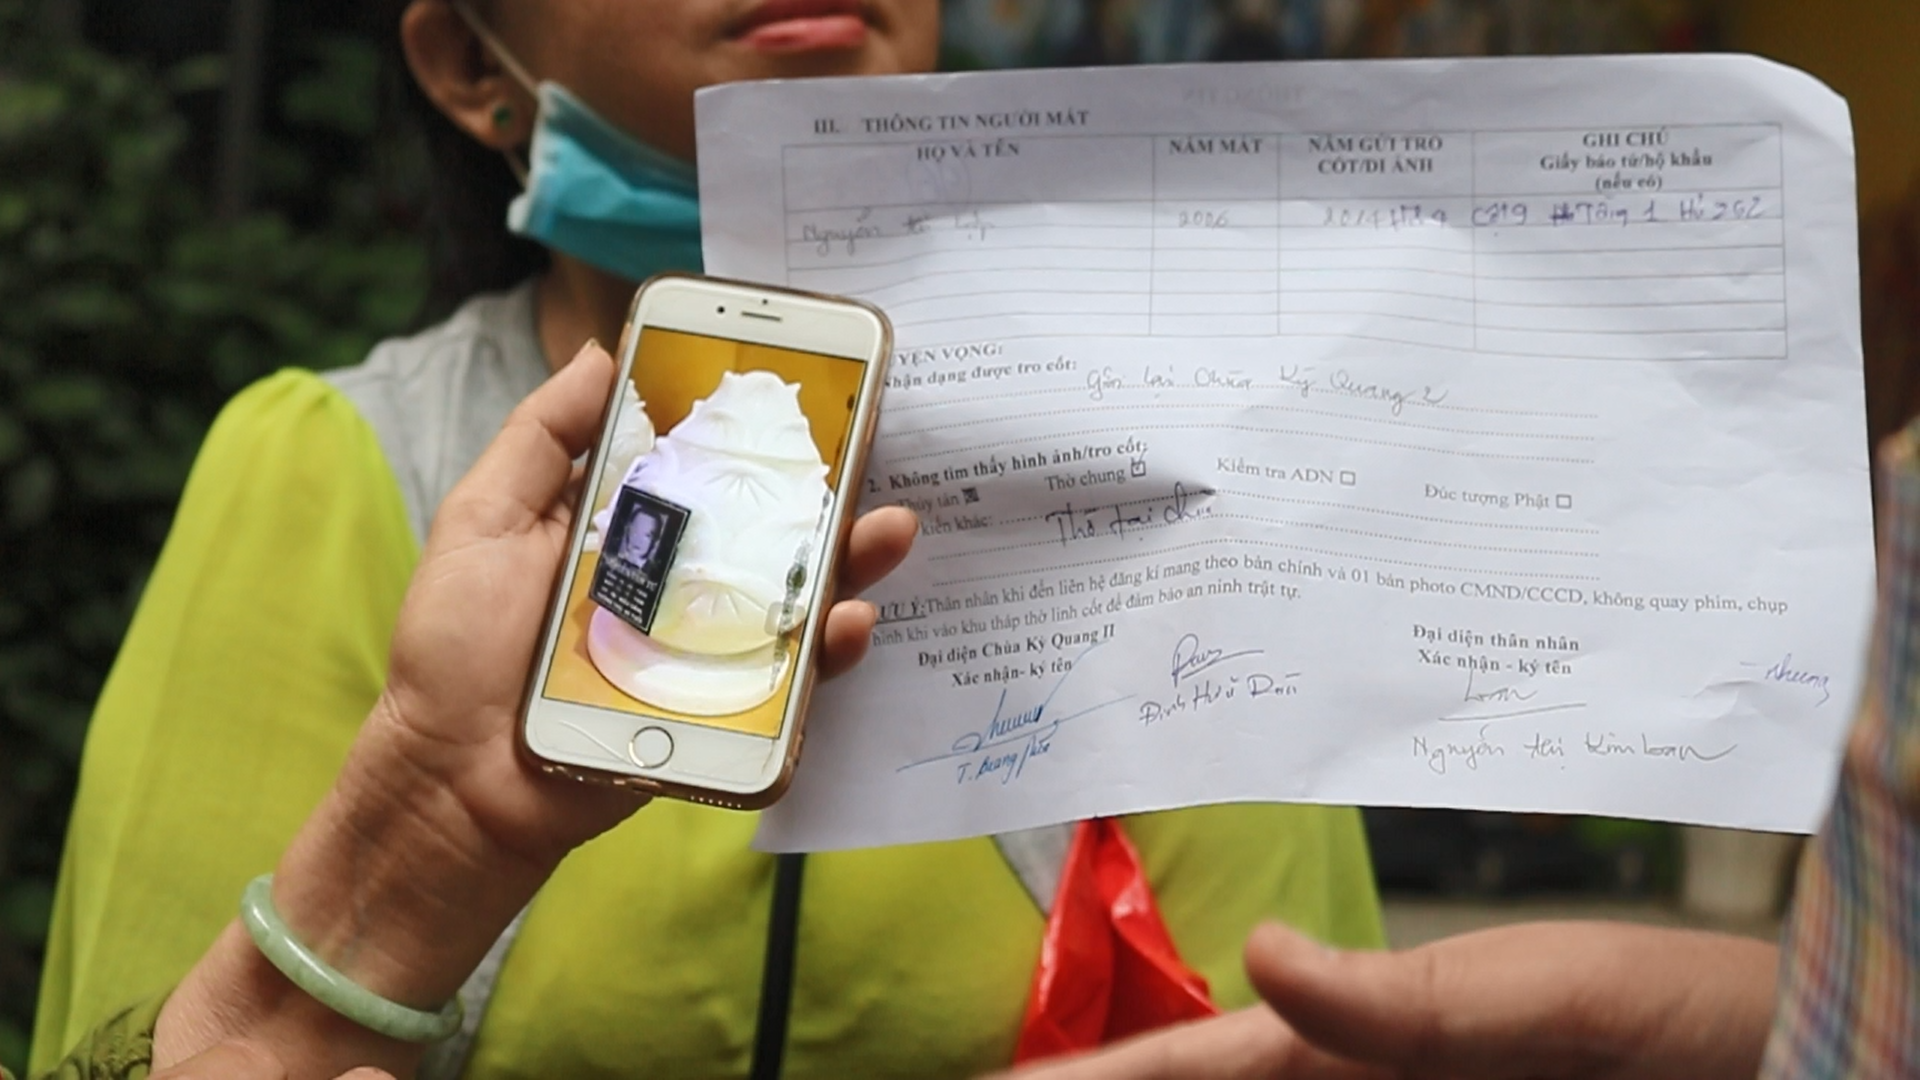 III. THÔNG TIN NGƯỜI MẤT
HỌ VÀ TÊN
NĂM MẤT
NĂM GỬI TRO CỐT/DI ẢNH
GHI CHÚ
Giấy báo tử/hộ khẩu
(nếu có)
Nguyễn thị
2006
2014
Tầng 1 Hủ 262
YỆN VỌNG:
Nhận dạng được tro cốt: Gửi lại Chùa Kỳ Quang 2
2. Không tìm thấy hình ảnh/tro cốt:
Thủy tán
Thờ chung
Kiểm tra ADN
Đúc tượng Phật
kiến khác: Thờ tại chùa
LƯU Ý: Thân nhân khi đến liên hệ đăng kí mang theo bản chính và 01 bản photo CMND/CCCD, không quay phim, chụp
hình khi vào khu tháp thờ linh cốt để đảm bảo an ninh trật tự.
Đại diện Chùa Kỳ Quang II
Xác nhận- ký tên
Đại diện thân nhân
Xác nhận - ký tên
Đinh Hữu
Loan
Nhung
Nguyễn thị Kim Loan